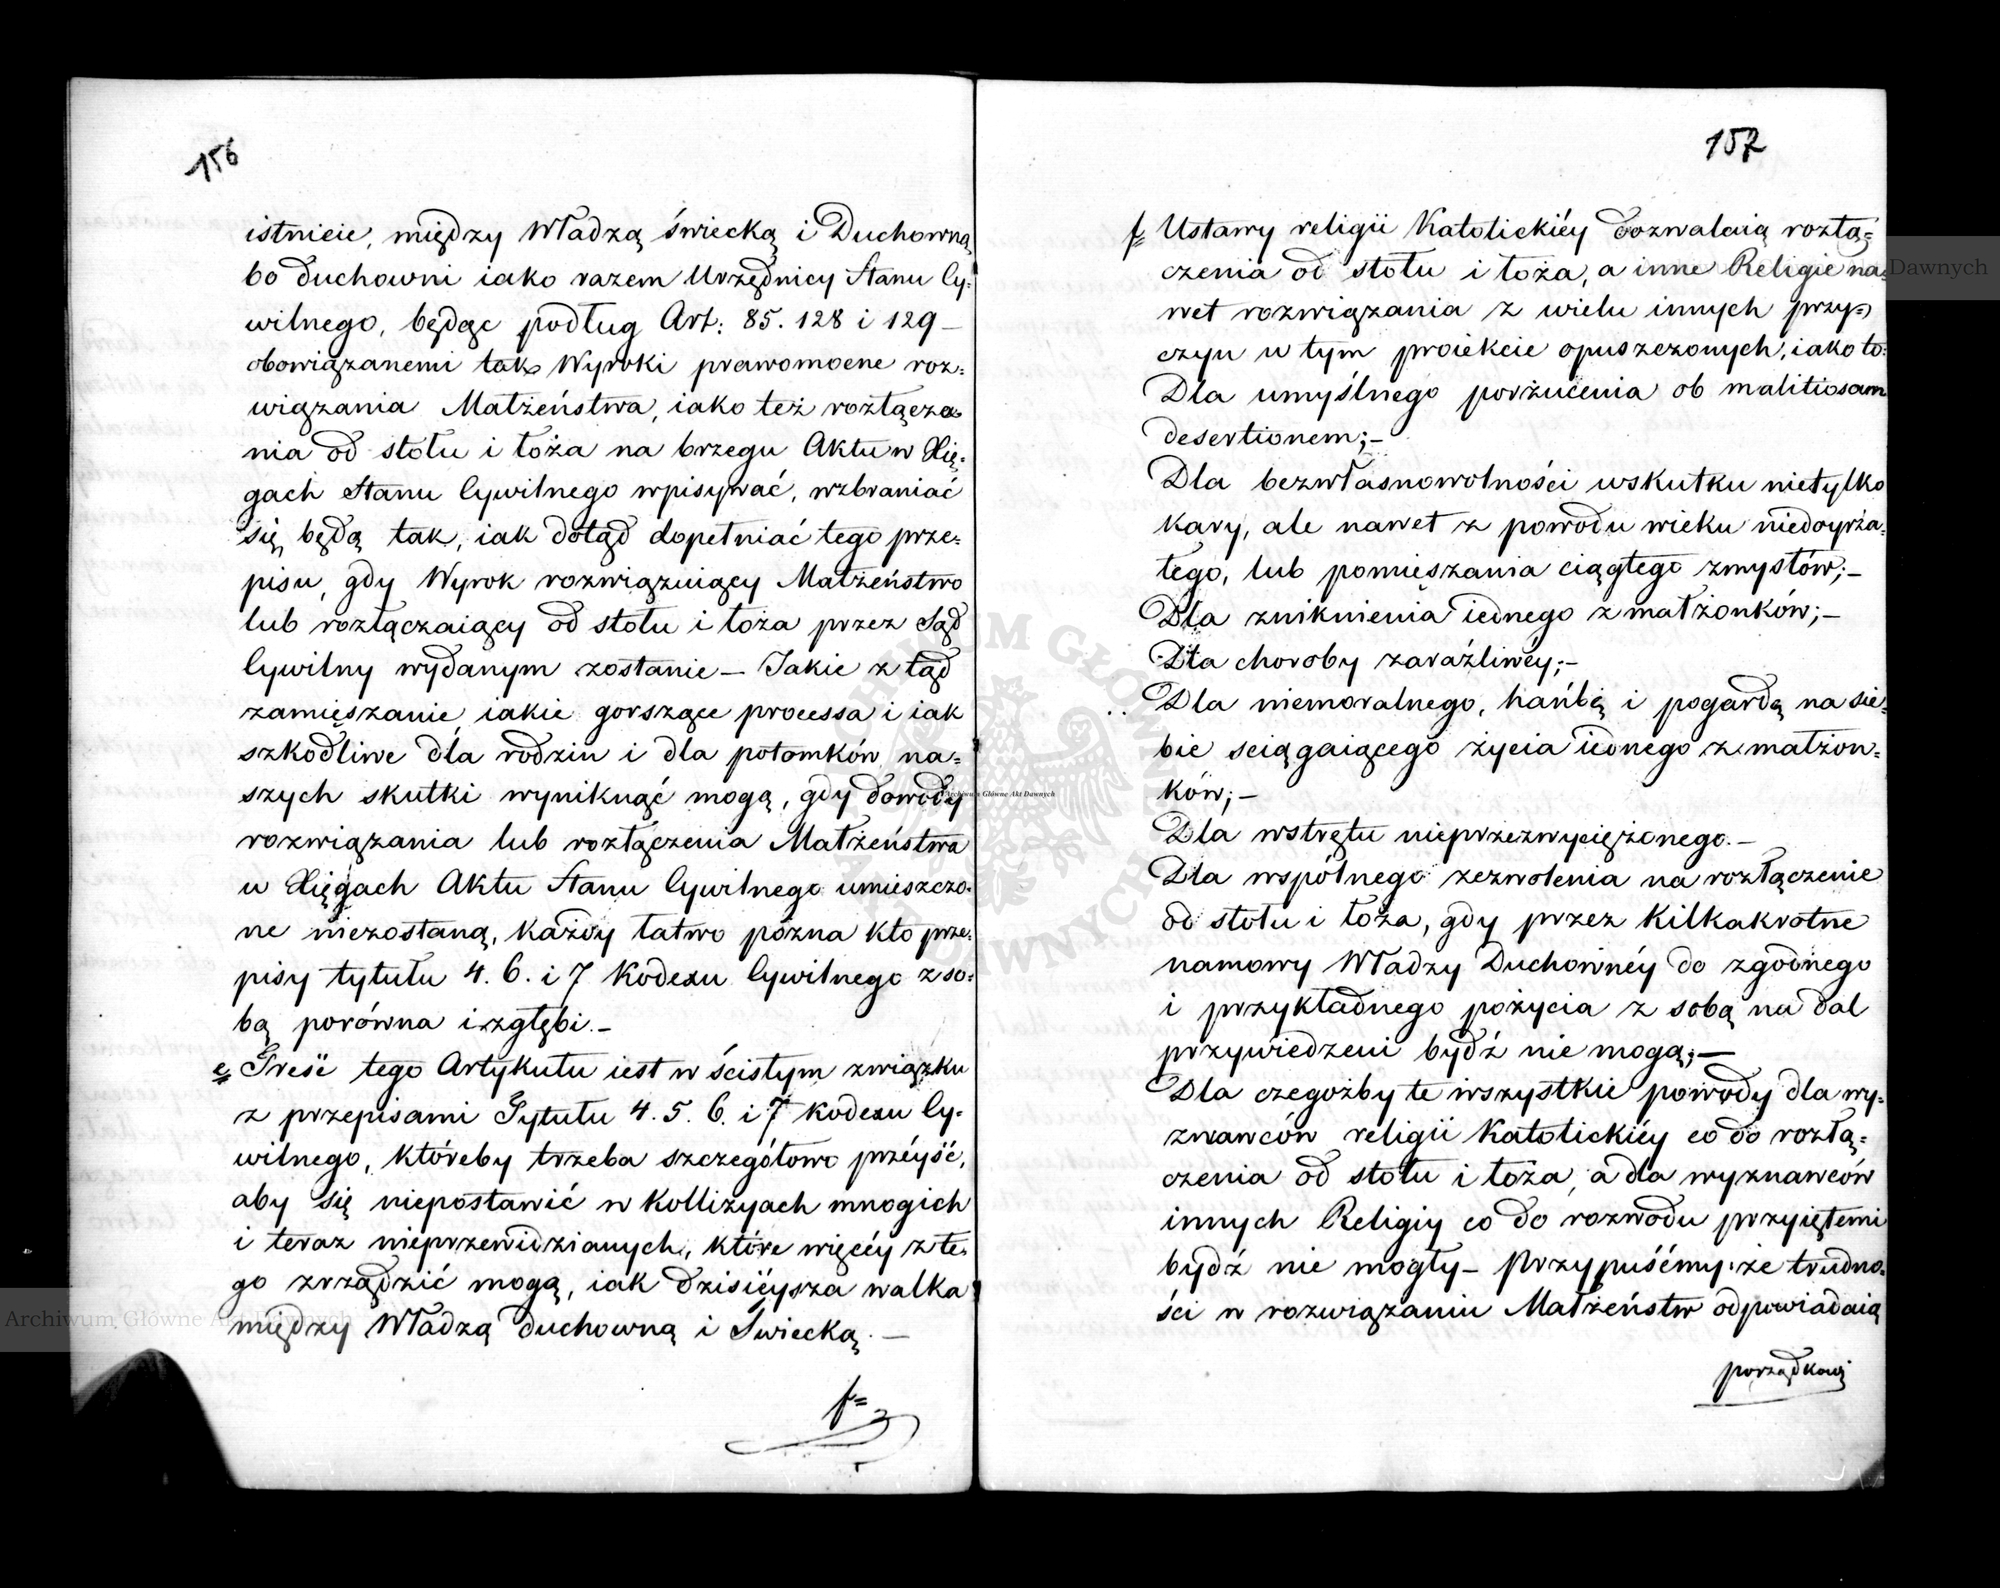 156
istnieie, między Władzą świecką i Duchowną
bo duchowni iako razem Urzędnicy Stanu Cy-
wilnego, będąc podług Art: 85. 128 i 129 –
obowiązanemi tak Wyroki prawomocne roz=
wiązania Małżeństwa, iako też rozłącza-
nia od stołu i łoża na brzegu Aktu w Xię-
gach Stanu Cywilnego wpisywać, wzbraniać
się będą tak, iak dotąd dopełniać tego prze=
pisu, gdy Wyrok rozwiązuiący Małżeństwo
lub rozłączaiący od stołu i łoża przez Sąd
Cywilny wydanym zostanie – Jakie z tąd
zamięszanie iakie gorszące processa i iak
szkodliwe dla rodzin i dla potomków na=
szych skutki wyniknąć mogą, gdy dowody
rozwiązania lub rozłączenia Małżeństwa
w Xięgach Aktu Stanu Cywilnego umieszczo-
ne niezostaną, każdy łatwo pozna kto prze-
pisy tytułu 4. 6. i 7 Kodexu Cywilnego z so-
bą porówna i zgłębi. –
e= Treść tego Artykułu iest w ścisłym związku
z przepisami Tytułu 4. 5. 6. i 7 Kodexu Cy-
wilnego, któreby trzeba szczegółowo przéyść,
aby się niepostawić w kollizyach mnogich
i teraz nieprzewidzianych, które więcéy z te-
go zrządzić mogą, iak dzisiéysza walka
między Władzą duchowną i Świecką. –
f=
157
f= Ustawy religii Katolickiéy dozwalaią rozłą=
czenia od stołu i łoża, a inne Religie na-
wet rozwiązania z wielu innych przy=
czyn w tym proiekcie opuszczonych, iako to:
Dla umyślnego porzucenia ob malitiosam
desertionem; –
Dla bezwłasnowolności wskutku nietylko
kary, ale nawet z powodu wieku niedoyrza-
łego, lub pomięszania ciągłego zmysłów; –
Dla zniknienia iednego z małżonków; –
Dla choroby zaraźliwéy; –
Dla niemoralnego, hańbę i pogardę na sie-
bie sciągaiącego życia iednego z małżon=
ków; –
Dla wstrętu nieprzezwyciężonego. –
Dla wspólnego zezwolenia na rozłączenie
od stołu i łoża, gdy przez kilkakrotne
namowy Władzy Duchownéy do zgodnego
i przykładnego pożycia z sobą na dal
przywiedzeni bydź nie mogą; –
Dla czegożby te wszystkie powody dla wy-
znawców religii Katolickiéy co do rozłą=
czenia od stołu i łoża, a dla wyznawców
innych Religiy co do rozwodu przyiętemi
bydź nie mogły – Przypuśćmy że trudno-
ści w rozwiązaniu Małżeństw odpowiadaią
porządkowi
ARCHIWUM GŁÓWNE AKT DAWNYCH
Archiwum Główne Akt Dawnych
Archiwum Główne Akt Dawnych
Dawnych